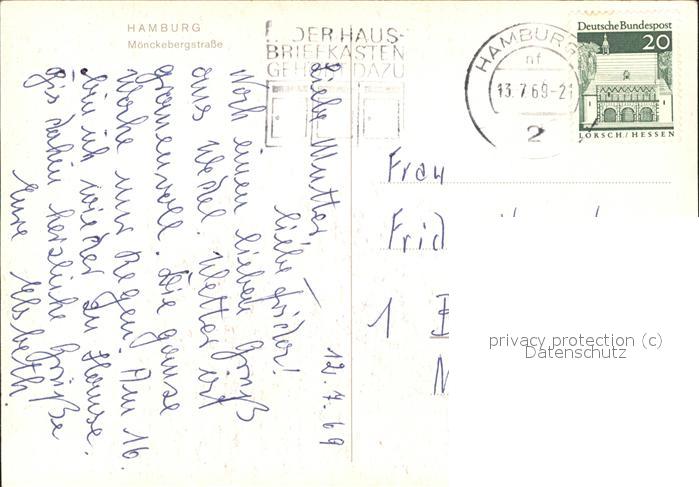 HAMBURG
Mönckebergstraße
... DER HAUS-
BRIEFKASTEN
GEHÖRT DAZU
HAMBURG
nf
13.7.69-21
2
Deutsche Bundespost
20
LORSCH/HESSEN
12.7.69
Liebe Mutter,
liebe
Noch einen lieben Gruß
aus Wedel. Wetter ist
grauenvoll. Die ganze
Woche nur Regen. Am 16.
bin ich wieder zu Hause.
Bis dahin herzliche Grüße
Eure Elsbeth.
Frau
Frid
1
privacy protection (c)
Datenschutz